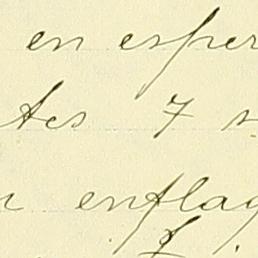 en esper
tes 7 s
enflag